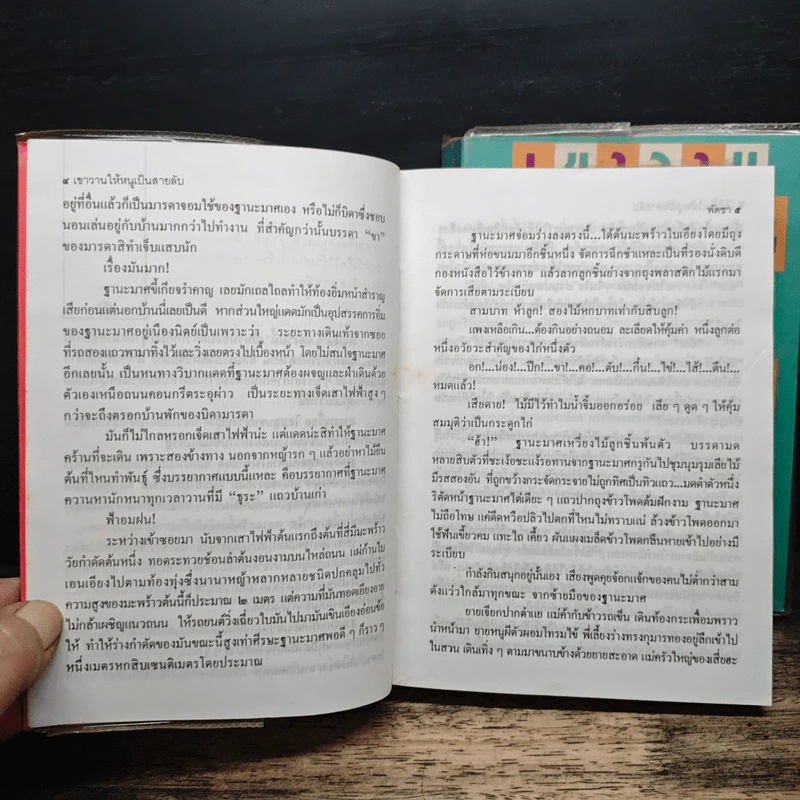 ๔ เขาวานให้หนูเป็นสายลับ
อยู่ที่อื่นแล้วก็เป็นมารดาจอมใช้ของฐานะมาศเอง หรือไม่ก็บิดาซึ่งชอบ
นอนเล่นอยู่กับบ้านมากกว่าไปทำงาน ที่สำคัญกว่านั้นบรรดา “ขา”
ของมารดาสิทำเจ็บแสบนัก
เรื่องมันมาก!
ฐานะมาศขี้เกียจรำคาญ เลยมักเถลไถลทำให้ท้องอิ่มหน้าสำราญ
เสียก่อนแต่นอกบ้านนี่เลยเป็นดี หากส่วนใหญ่แดดมักเป็นอุปสรรคการอิ่ม
ของฐานะมาศอยู่เนืองนิตย์เป็นเพราะว่า ระยะทางเดินเท้าจากซอย
ที่รถสองแถวพามาทิ้งไว้และวิ่งเลยตรงไปเบื้องหน้า โดยไม่สนใจฐานะมาศ
อีกเลยนั้น เป็นหนทางวิบากแดดที่ฐานะมาศต้องผจญและฝ่าเดินด้วย
ตัวเองเหนือถนนคอนกรีตระอุผ่าว เป็นระยะทางเจ็ดเสาไฟฟ้าสูง ๆ
กว่าจะถึงตรอกบ้านพักของบิดามารดา
มันก็ไม่ไกลหรอกเจ็ดเสาไฟฟ้าน่ะ แต่แดดน่ะสิทำให้ฐานะมาศ
คร้านที่จะเดิน เพราะสองข้างทาง นอกจากหญ้ารก ๆ แล้วอย่าหาไม้ยืน
ต้นที่ไหนทำพันธุ์ ซึ่งบรรยากาศแบบนี้แหละ คือบรรยากาศที่ฐานะมาศ
ควานหานักหนาทุกเวลาวานที่มี “ธุระ” แถวบ้านเก่า
ฟ้าอมฝน!
ระหว่างเข้าซอยมา นับจากเสาไฟฟ้าต้นแรกถึงต้นที่สี่มีมะพร้าว
วัยกำดัดต้นหนึ่ง ทอดระทวยช้อนลำต้นงอนงามบนไหล่ถนน แผ่ก้านใบ
เอนเอียงไปตามท้องทุ่งซึ่งนานาหญ้าหลากหลายชนิดปกคลุมไปทั่ว
ความสูงของมะพร้าวต้นนี้ก็ประมาณ ๒ เมตร แต่ความที่มันทอดเอียงอาย
ไม่กล้าเผชิญแนวถนน ให้รถยนต์วิ่งเฉี่ยวใบมันไปมามันเขินเอียงอ่อนช้อย
ให้ ทำให้ร่างกำดัดของมันขณะนี้สูงเท่าศีรษะฐานะมาศพอดี ๆ ก็ราว ๆ
หนึ่งเมตรหกสิบเซนติเมตรโดยประมาณ
พัดชา ๕
ฐานะมาศจ่อมร่างลงตรงนี้...ใต้ต้นมะพร้าวใบเอียงโดยมีถุง
กระดาษที่ห่อขนมมาอีกชั้นหนึ่ง จัดการฉีกชำแหละเป็นที่รองนั่งดิบดี
กองหนังสือไว้ข้างกาย แล้วลากลูกชิ้นย่างจากถุงพลาสติกไม้แรกมา
จัดการเสียตามระเบียบ
สามบาท ห้าลูก! สองไม้หกบาทเท่ากับสิบลูก!
แพงเหลือเกิน...ต้องกินอย่างถนอม ละเลียดให้คุ้มค่า หนึ่งลูกต่อ
หนึ่งอวัยวะสำคัญของไก่หนึ่งตัว
อก!...น่อง!...ปีก!...ขา!...คอ!...ตับ!...กึ๋น!...ไข่!...ไส้!...ตีน!...
หมดแล้ว!
เสียดาย! ไม้มีไว้ทำไมน้ำจิ้มออกอร่อย เลีย ๆ ดูด ๆ ให้คุ้ม
สมมุติว่าเป็นกระดูกไก่
“ฮ้า!” ฐานะมาศเหวี่ยงไม้ลูกชิ้นพ้นตัว บรรดามด
หลายสิบตัวที่ชะเง้อชะแง้รอทานจากฐานะมาศกรูกันไปชุมนุมรุมเลียไม้
มีรสสองอัน ที่ถูกขว้างกระจัดกระจายไม่ถูกทิศเป็นทิวแถว...มดดำตัวหนึ่ง
ริตัดหน้าฐานะมาศไต่เดียะ ๆ แถวปากถุงข้าวโพดต้มฝักงาม ฐานะมาศ
ไม่ถือโทษ แค่ดีดหวือปลิวไปตกที่ไหนไม่ทราบแน่ ล้วงข้าวโพดออกมา
ใช้ฟันเขี้ยวคม แทะไถ เคี้ยว ผันแผงเมล็ดข้าวโพดกลืนหายเข้าไปอย่างมี
ระเบียบ
กำลังกินสนุกอยู่นั้นเอง เสียงพูดคุยจ้อกแจ้กของคนไม่ต่ำกว่าสาม
ดังแว่วใกล้มาทุกขณะ จากซ้ายมือของฐานะมาศ
ยายเจียกปากตำแย แม่ค้ากับข้าวรถเข็น เดินท้องกระเพื่อมพราว
นำหน้ามา ยายหนูผีตัวผอมโทรมไข้ พี่เลี้ยงร่างทรงกุมารทองอยู่ลึกเข้าไป
ในสวน เดินเทิ่ง ๆ ตามมาขนาบข้างด้วยยายสะอาด แม่ครัวใหญ่ของเสี่ยฮะ